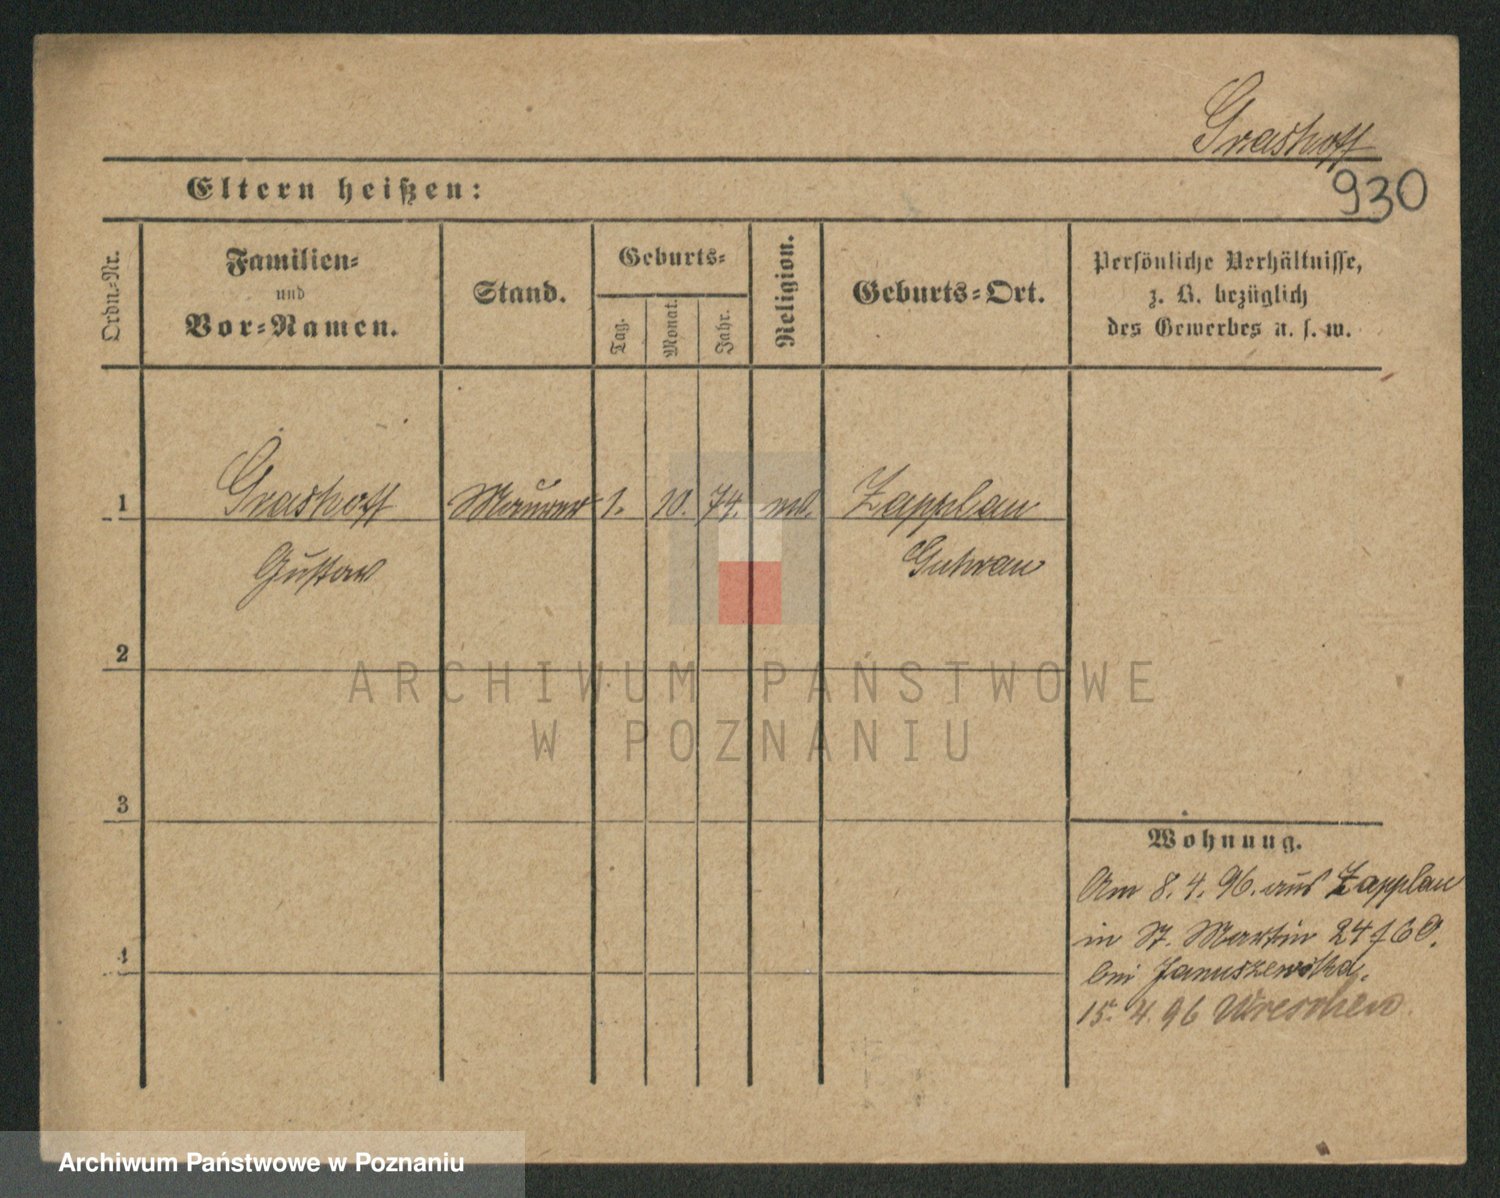 Grashoff
930
Eltern heißen:
Ordn.-Nr.
Familien-
und
Vor-Namen.
Stand.
Geburts-
Tag.
Monat.
Jahr.
Religion.
Geburts-Ort.
Persönliche Verhältnisse,
z. B. bezüglich
des Gewerbes u. s. w.
1
Grashoff Maurer 1. 10. 74. Zapplau
Gustav Guhrau
2
3
4
Wohnung.
Am 8. 4. 96. aus Zapplau
in St. Martin
bei Januszewska.
15. 4. 96 Wreschen.
ARCHIWUM PAŃSTWOWE
W POZNANIU
Archiwum Państwowe w Poznaniu